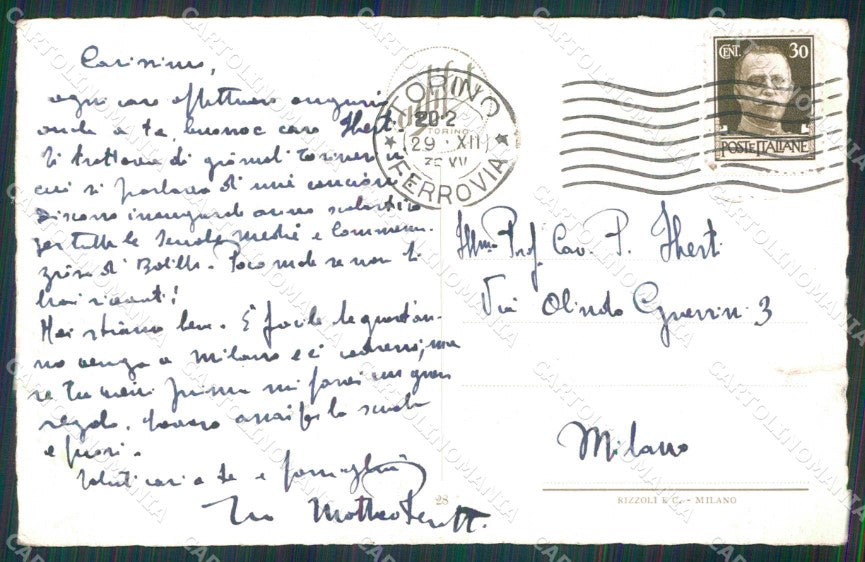 Carissimo,
ogni caro affettuoso augurio
anche a te, buono e caro Thert.
Ti tratterei di giornali Torinesi in
cui si parlava di
discorso inaugurale anno scolastico
per tutte le Scuole Medie e
di Balilla. Poco male se non li
hai ricevuti!
Noi stiamo bene. È facile che quest'an-
no venga a Milano e ci vedremo, ma
se tu vieni prima mi farai un gran
regalo. Lavoro assai per la scuola
e fuori.
Saluti cari a te e famiglia
Tuo Matteo
TORINO
20.2
TORINO
29 · XII
XVI
FERROVIA
CENT. 30
POSTE ITALIANE
Ill.mo Prof. Cav. P. Thert
Via Olindo Guerrini 3
Milano
28
RIZZOLI & C. - MILANO
CARTOLINOMANIA